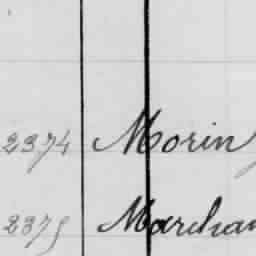 2374 Morin
2375 Marchan